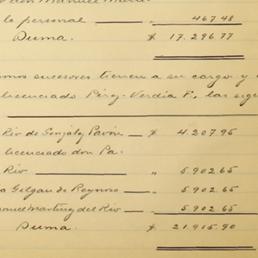 don Manuel
lo personal — " 467 48
Suma. $ 17.296 77
mos sucesores tienen a su cargo y
licenciado Pérez Verdía F., las sig
Río de González Pavón — $ 4.207 95
licenciado don Pa.
Río — " 5.902 65
Gelgau de Reynoso — " 5.902 65
Martínez del Río — " 5.902 65
Suma. $ 21.915 90